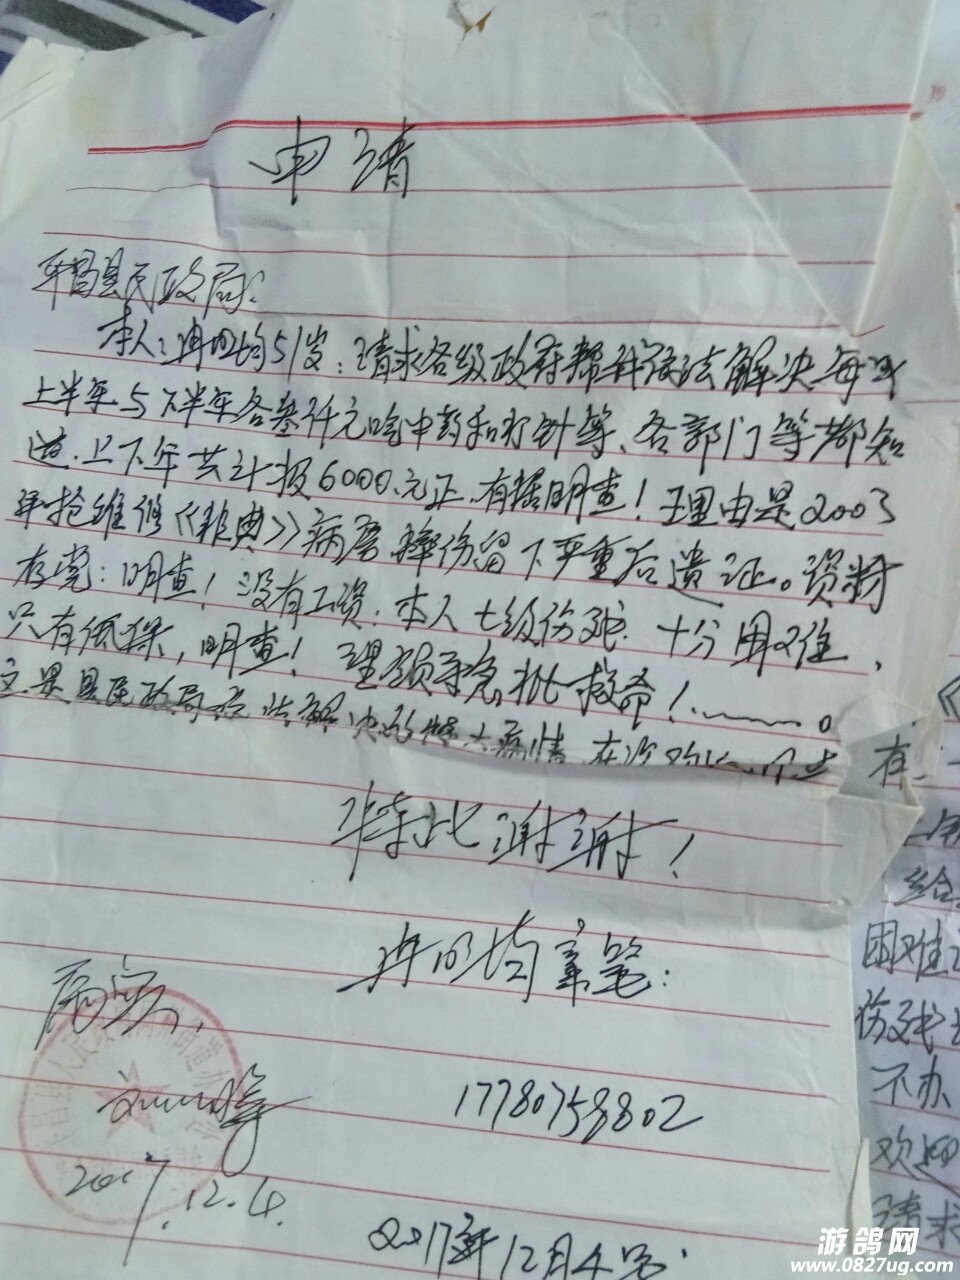 申请
平昌县民政局:
本人:冉明均51岁:请求各级政府帮我依法解决每年
上半年与下半年各叁仟元吃中药和打针等、各部门等都知
道.上下年共计报6000.元正.有据明查!理由是2003
年抢维修《非典》病房摔伤留下严重后遗证。资料
存党:明查!没有工资.本人七级伤残.十分困难,
只有低保,明查!望领导急批救命!……。
特此谢谢!
冉明均亲笔:
属实,
2017.12.4.
17780758802
2017年12月4号
有
给
困难
伤残
不办
欢迎
请求
游鸽网
www.0827ug.com